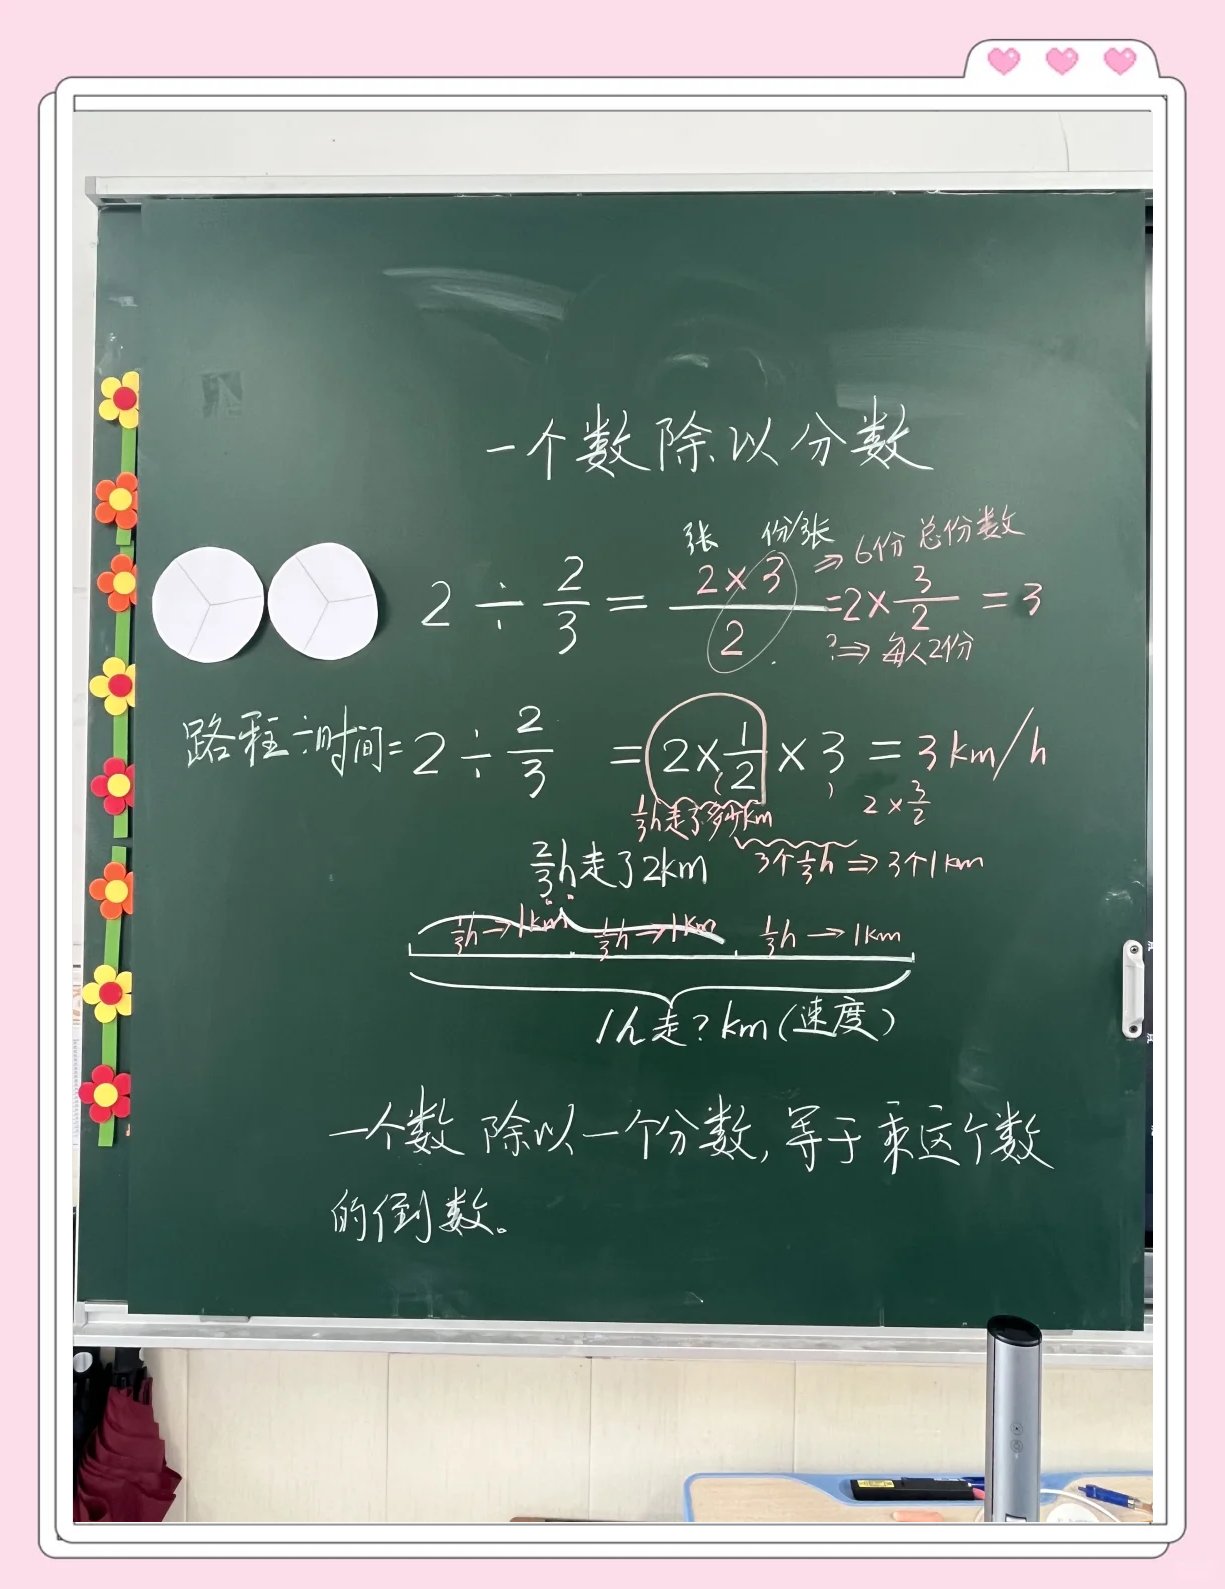 一个数除以分数
张 份/张 ⇒ 6份 总份数
2 ÷ 2/3 = (2×3)/2 = 2×3/2 = 3
?⇒ 每人2份
路程÷时间=2÷2/3 = 2×1/2×3 = 3km/h
2×3/2
1/3h走了多少km
2/3h走了2km 3个1/3h ⇒ 3个1km
1/3h→1km 1/3h→1km 1/3h→1km
1h走?km(速度)
一个数除以一个分数,等于乘这个数
的倒数。